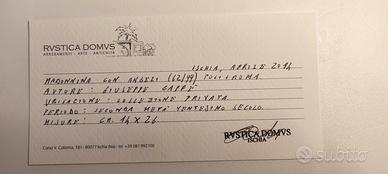 RVSTICA DOMVS
ARREDAMENTI - ARTE - ANTICHITÀ
ISCHIA, APRILE 2014
MADONNINA CON ANGELO (62/99) POLICROMA.
AUTORE: GIUSEPPE CAPPÈ
UBICAZIONE: COLLEZIONE PRIVATA.
PERIODO: SECONDA METÀ VENTESIMO SECOLO.
MISURE: CM. 14 X 26.
RVSTICA DOMVS
ISCHIA
Corso V. Colonna, 181 - 80077 Ischia (Na) - tel +39 081 992108
subito